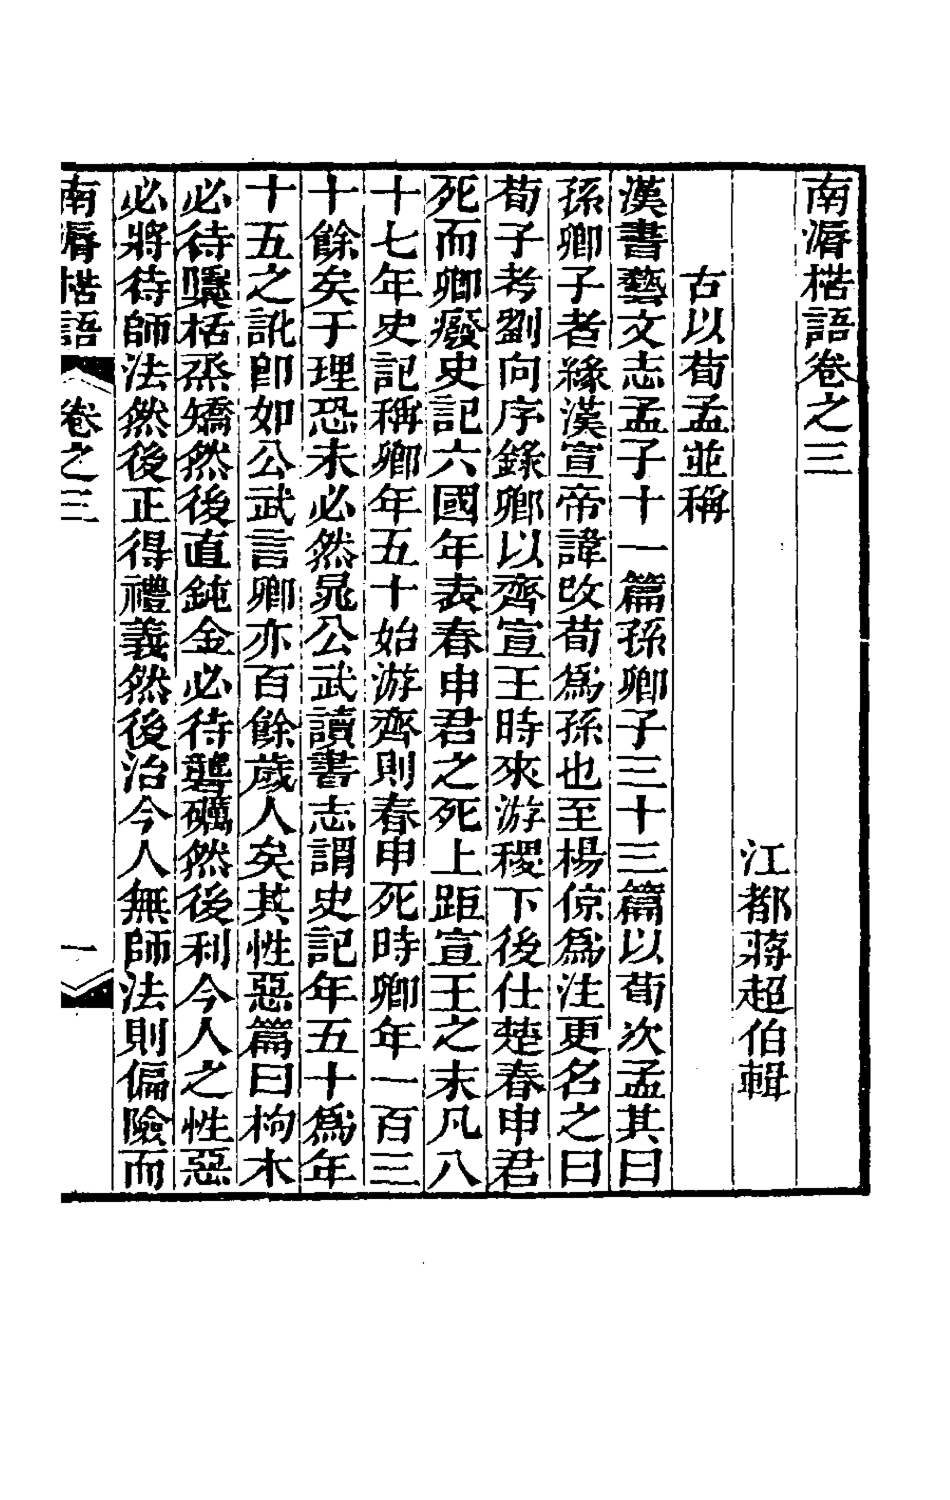 南漘楛語卷之三
江都蔣超伯輯
古以荀孟並稱
漢書藝文志孟子十一篇孫卿子三十三篇以荀次孟其曰
孫卿子者緣漢宣帝諱改荀爲孫也至楊倞爲注更名之曰
荀子考劉向序錄卿以齊宣王時來游稷下後仕楚春申君
死而卿癈史記六國年表春申君之死上距宣王之末凡八
十七年史記稱卿年五十始游齊則春申死時卿年一百三
十餘矣于理恐未必然晁公武讀書志謂史記年五十爲年
十五之訛卽如公武言卿亦百餘歲人矣其性惡篇曰枸木
必待檃栝烝矯然後直鈍金必待礱礪然後利今人之性惡
必將待師法然後正得禮義然後治今人無師法則偏險而
南漘楛語
卷之三
一